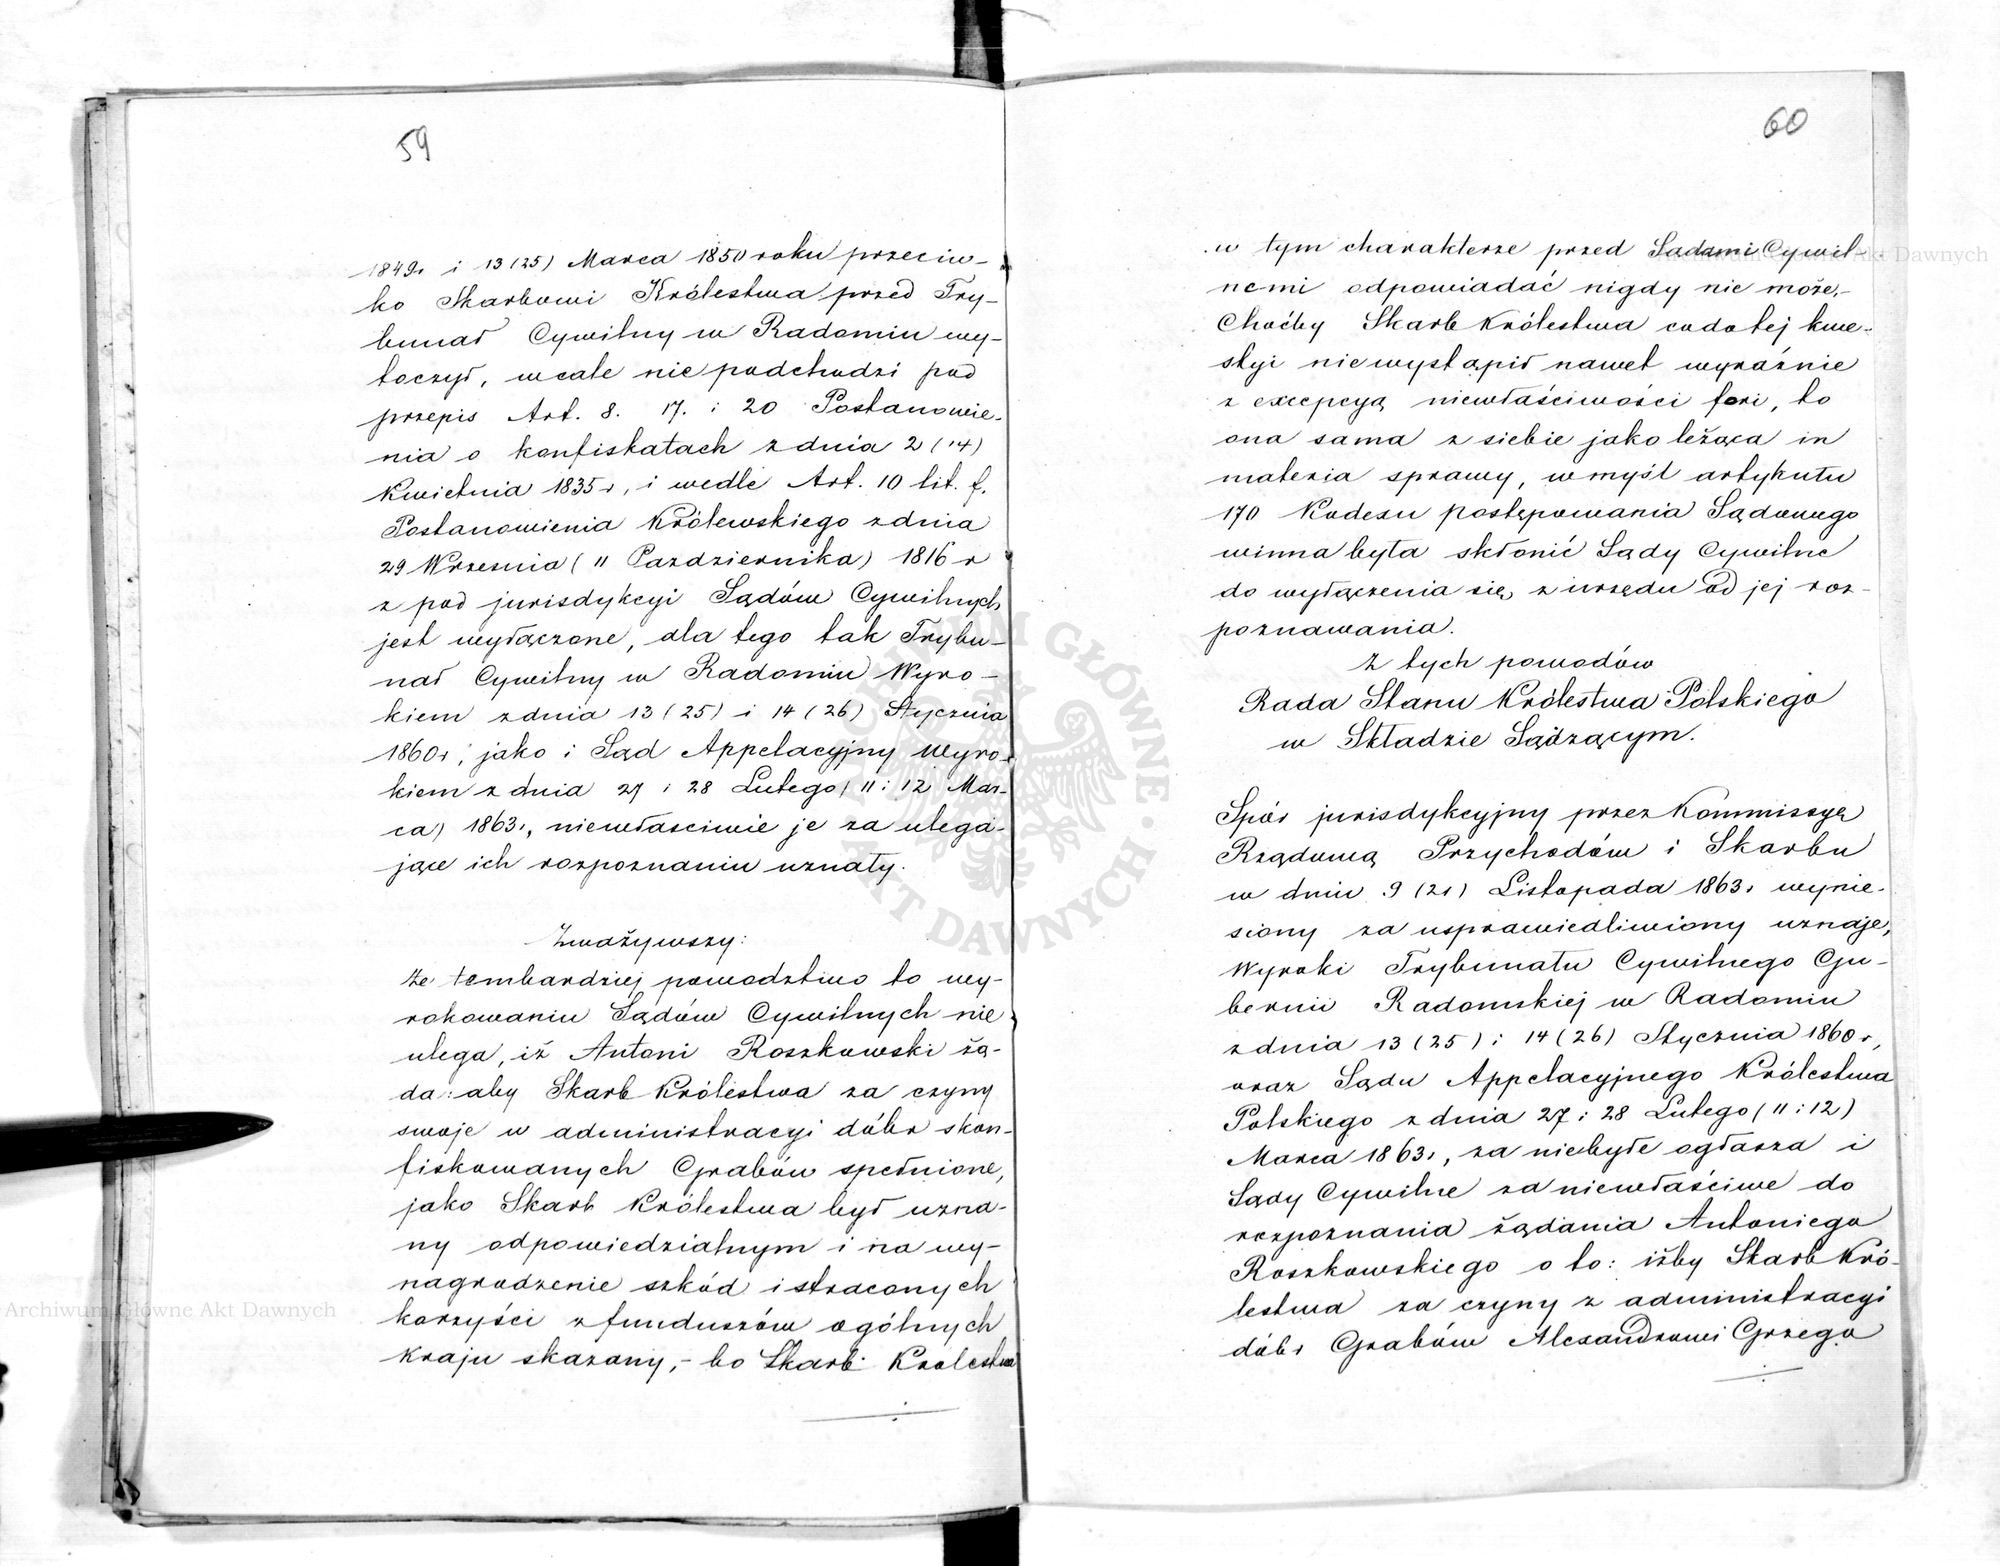 59
1849r i 13 (25) Marca 1850 roku przeciw-
ko Skarbowi Królestwa przed Try-
bunał Cywilny w Radomiu wy-
toczył, wcale nie podchodzi pod
przepis Art. 8. 17. i 20 Postanowie-
nia o konfiskatach z dnia 2 (14)
Kwietnia 1835r, i wedle Art. 10 lit. f.
Postanowienia Królewskiego z dnia
29 Wrzesnia (11 Pazdziernika) 1816 r
z pod jurisdykcyi Sądów Cywilnych
jest wyłączone, dla tego tak Trybu-
nał Cywilny w Radomiu Wyro-
kiem z dnia 13 (25) i 14 (26) Stycznia
1860r, jako i Sąd Appelacyjny Wyro-
kiem z dnia 27 i 28 Lutego (11 i 12 Mar-
ca) 1863r, niewłasciwie je za ulega-
jące ich rozpoznaniu uznały.
Zważywszy:
że tembardziej powodztwo to wy-
rokowaniu Sądów Cywilnych nie
ulega, iż Antoni Roszkowski żą-
da: aby Skarb Królestwa za czyny
swoje w administracyi dóbr skon-
fiskowanych Grabów spełnione,
jako Skarb Królestwa był uzna-
ny odpowiedzialnym i na wy-
nagrodzenie szkód i straconych
korzyści z funduszów ogólnych
kraju skazany,- bo Skarb Krolestwa
60
w tym charakterze przed Sądami Cywil-
nemi odpowiadać nigdy nie może,-
Choćby Skarb Królestwa co do tej kwe-
styi niewystąpił nawet wyraźnie
z excepcyą niewłaściwości fori, to
ona sama z siebie jako leżąca in
materia sprawy, w myśl artykułu
170 Kodexu postępowania Sądowego
winna była skłonić Sądy Cywilne
do wyłączenia się z urzędu od jej roz-
poznawania.
Z tych powodów
Rada Stanu Królestwa Polskiego
w Składzie Sądzącym.
Spór jurisdykcyjny przez Kommissyą
Rządową Przychodów i Skarbu
w dniu 9 (21) Listopada 1863r wynie-
siony za usprawiedliwiony uznaje,
Wyroki Trybunału Cywilnego Gu-
bernii Radomskiej w Radomiu
z dnia 13 (25) i 14 (26) Stycznia 1860 r,
oraz Sądu Appelacyjnego Królestwa
Polskiego z dnia 27 i 28 Lutego (11 i 12)
Marca 1863r, za niebyłe ogłasza i
Sądy Cywilne za niewłaściwe do
rozpoznania żądania Antoniego
Roszkowskiego o to: iżby Skarb Kró-
lestwa za czyny z administracyi
dóbr Grabów Alexandrowi Grzego
Archiwum Główne Akt Dawnych